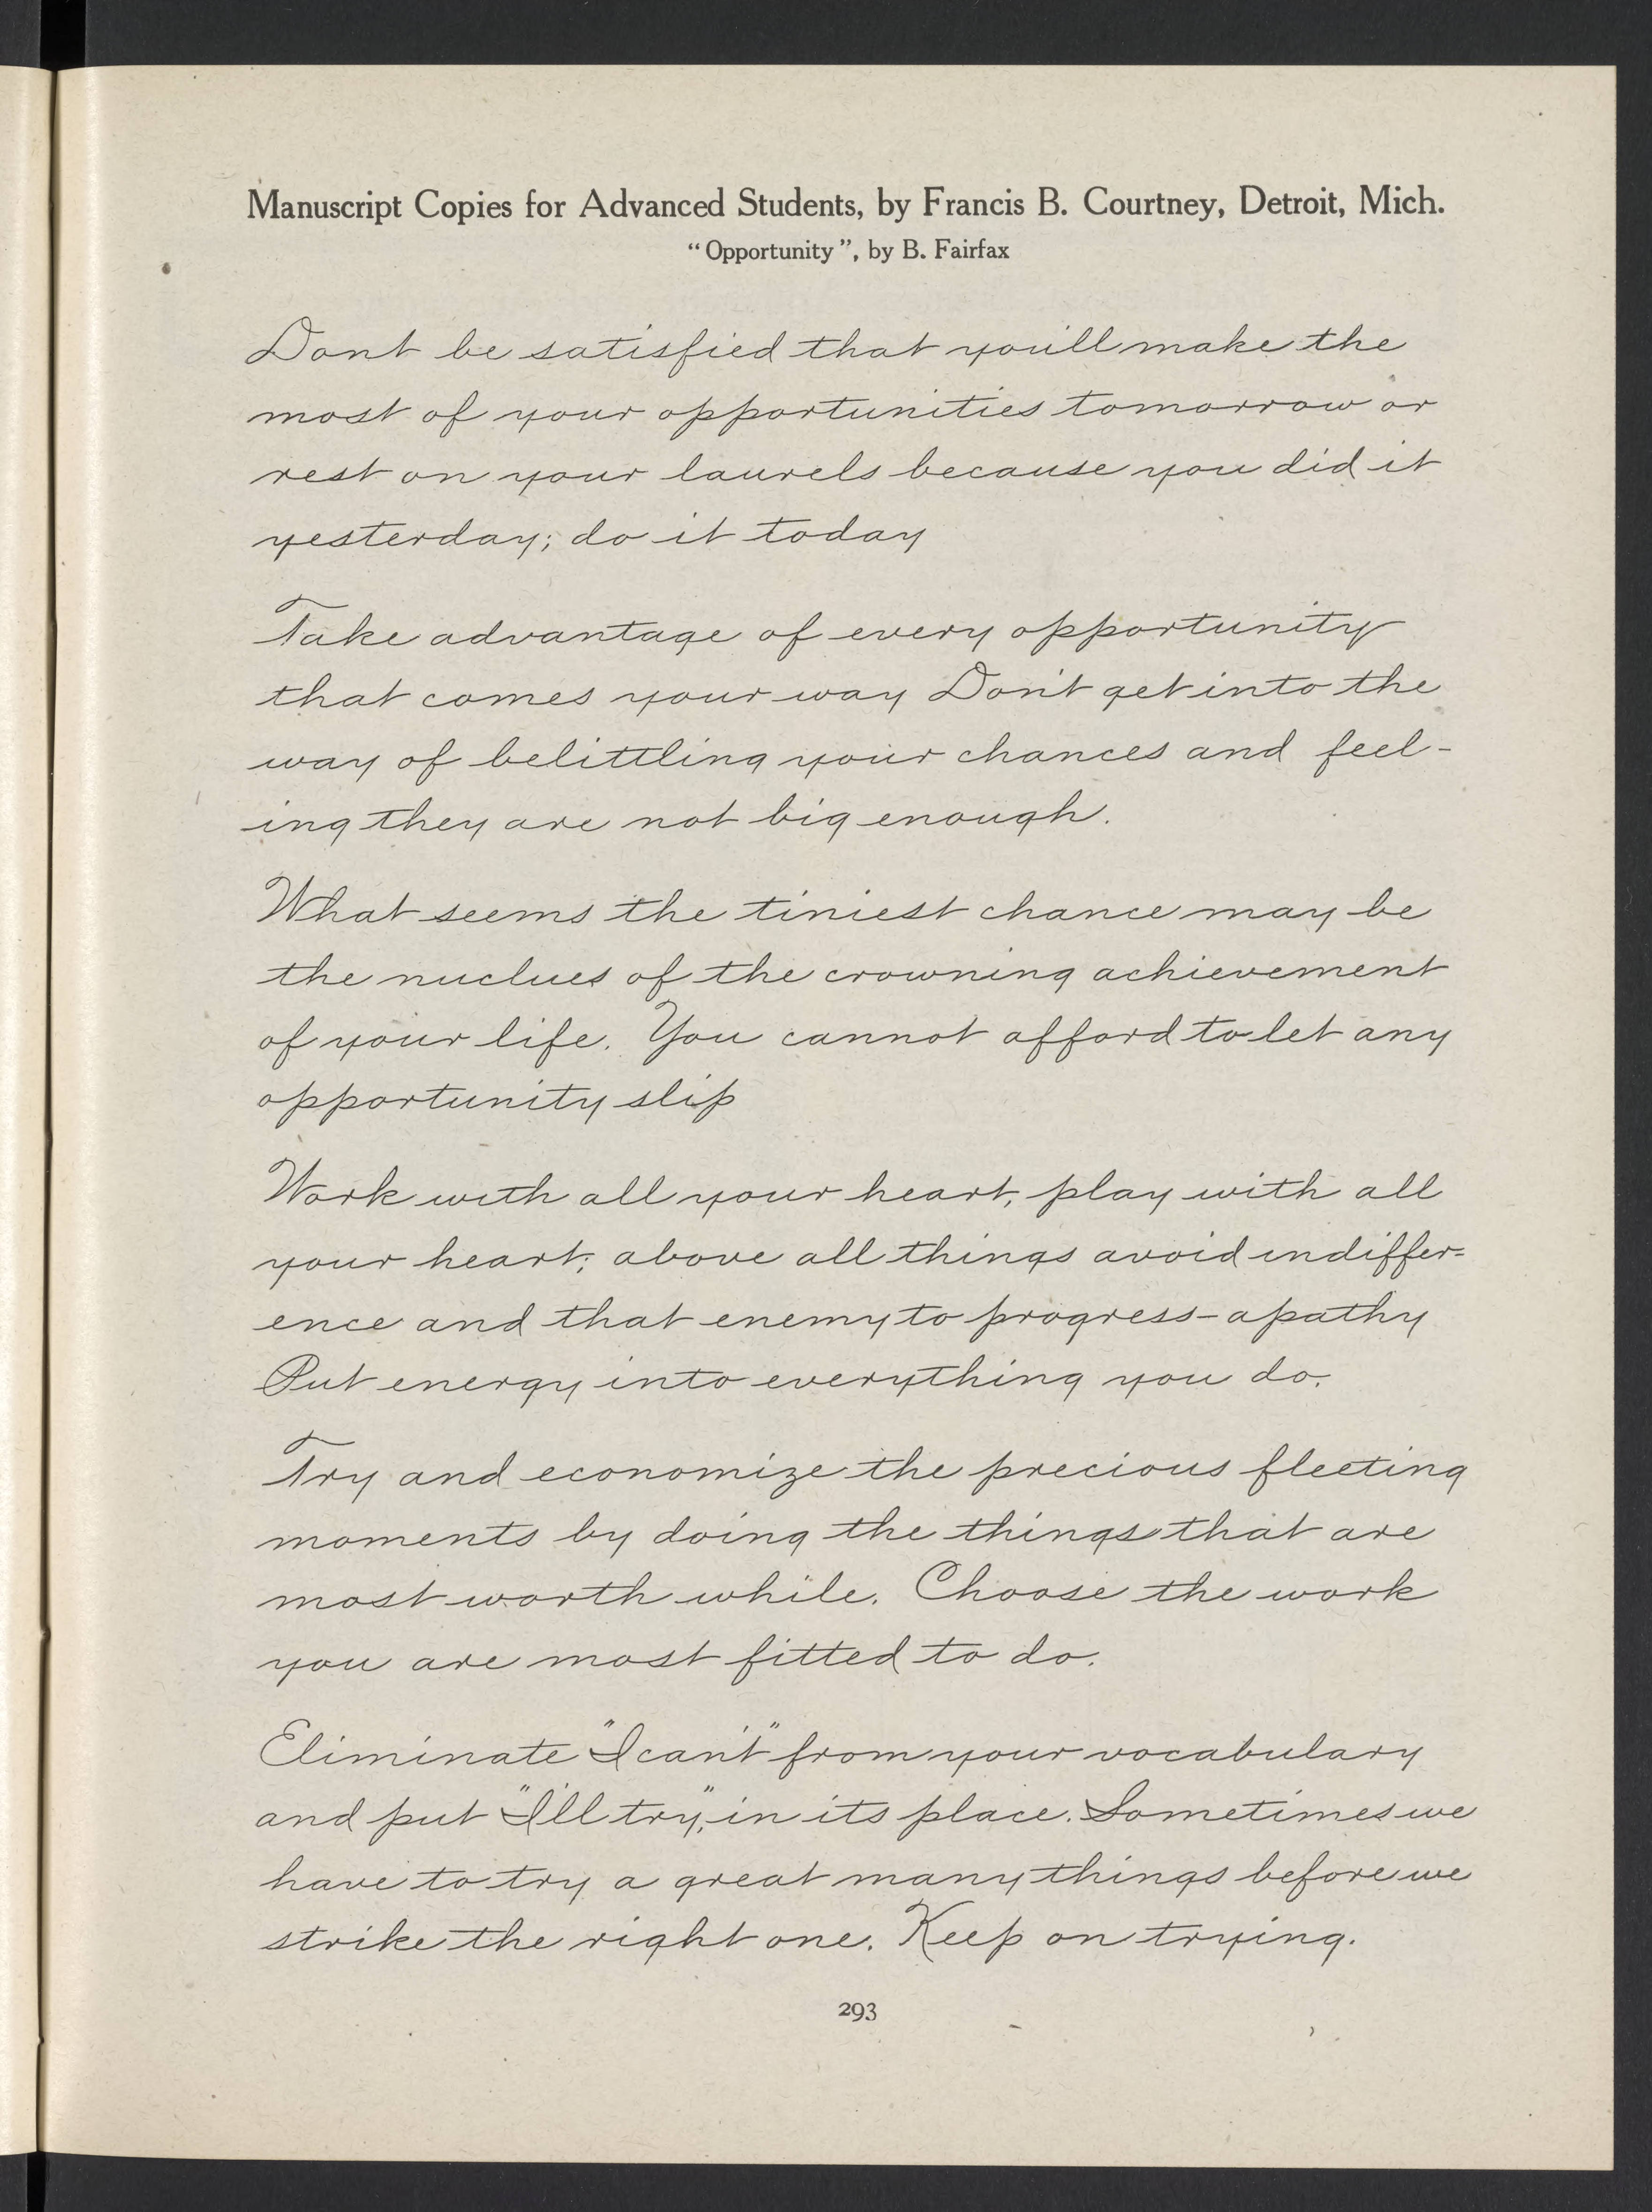 Manuscript Copies for Advanced Students, by Francis B. Courtney, Detroit, Mich.
“Opportunity”, by B. Fairfax
Dont be satisfied that you'll make the
most of your opportunities tomorrow or
rest on your laurels because you did it
yesterday; do it today
Take advantage of every opportunity
that comes your way Don't get into the
way of belittling your chances and feel-
ing they are not big enough.
What seems the tiniest chance may be
the nuclues of the crowning achievement
of your life. You cannot afford to let any
opportunity slip
Work with all your heart, play with all
your heart; above all things avoid indiffer=
ence and that enemy to progress-apathy
Put energy into everything you do.
Try and economize the precious fleeting
moments by doing the things that are
most worth while. Choose the work
you are most fitted to do.
Eliminate "I can't" from your vocabulary
and put "I'll try," in its place. Sometimes we
have to try a great many things before we
strike the right one. Keep on trying.
293